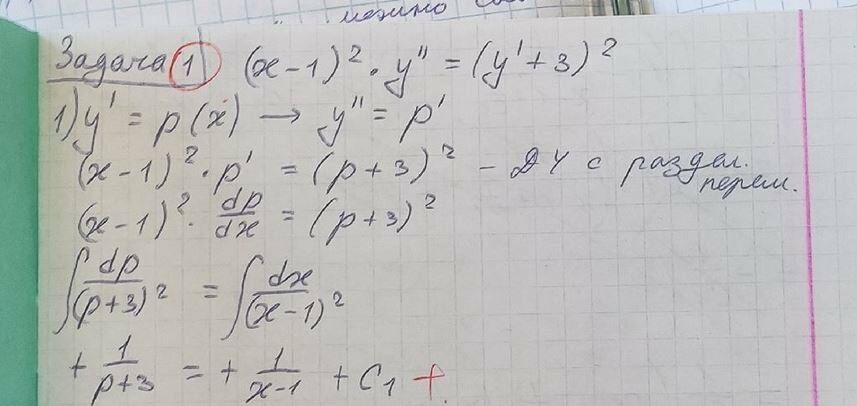 можно
Задача 1 (x-1)² · y'' = (y'+3)²
1) y' = p(x) → y'' = p'
(x-1)² · p' = (p+3)² - ДУ с раздел. перем.
(x-1)² · dp/dx = (p+3)²
∫ dp/(p+3)² = ∫ dx/(x-1)²
+ 1/(p+3) = + 1/(x-1) + C₁ +